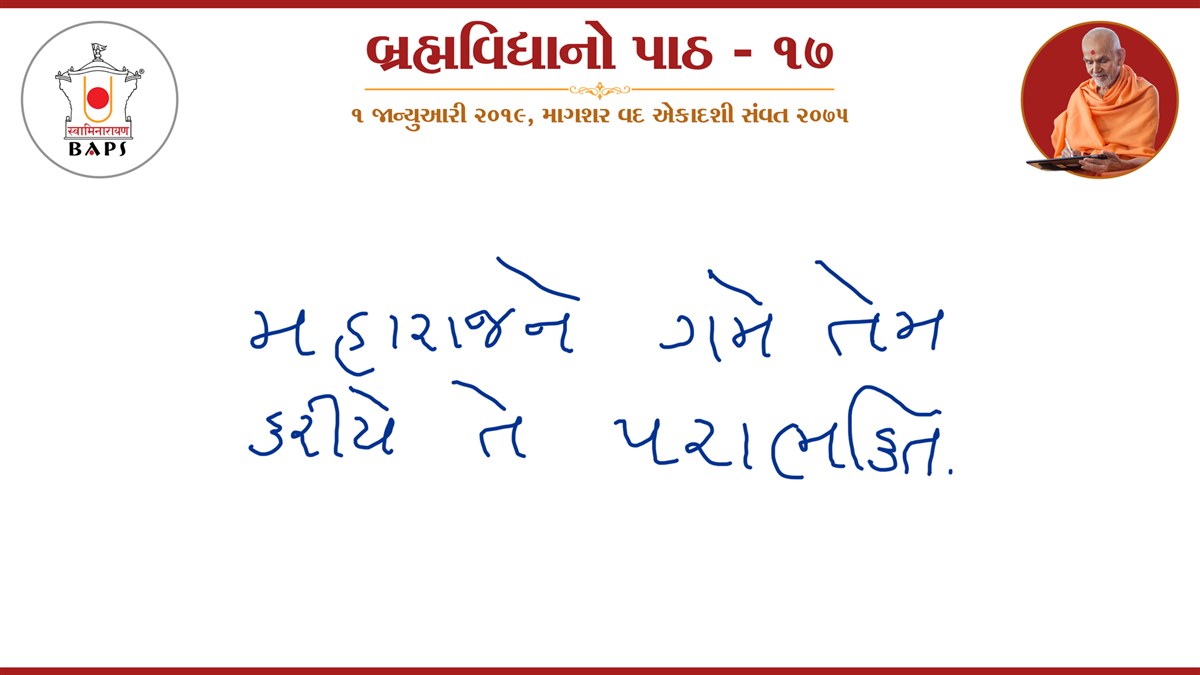 બ્રહ્મવિદ્યાનો પાઠ - ૧૭
૧ જાન્યુઆરી ૨૦૧૯, માગશર વદ એકાદશી સંવત ૨૦૭૫
स्वामिनारायण
BAPS
મહારાજને ગમે તેમ
કરીયે તે પરાભક્તિ.